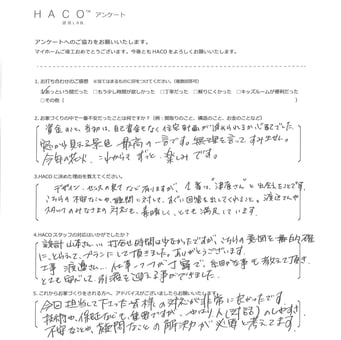 HACO™ アンケート
アンケートへのご協力をお願いいたします。
マイホームご竣工おめでとうございます。今後ともHACOをよろしくお願いいたします。
1.お打ち合わせのご感想 ※当てはまるものに印をつけてください。(複数回答可)
□あっという間だった □もう少し時間が欲しかった □丁寧だった □頼りにくかった □キッズルームが便利だった
□その他(
2.お家づくりの中で一番不安だったことは何ですか?(例:間取りのこと、構造のこと、お金のことなど)
資金のこと。当初は、自己資金もなく住宅計画が進められるか心配でした。
窓から見る景色 最高の一言です。無理を言ってすみません。
今年の花火、これからずっと 楽しみです。
3.HACOに決めた理由を教えてください。
デザイン、センスの良さなどありますが、1番は「渡邉さん」と出会えたことです。
こちらの不安なことや、疑問に対して、すぐに回答を出してくれること。渡辺さんや
スタッフのみなさまの対応も、素晴しく、とても満足しています。
4.HACOスタッフの対応はいかがでしたか?
設計 山本さん… 打合せ時間は少なかったですが、こちらの意図を的確
にとらえて、プランにして頂きました。ありがとうございます。
工事 渡邉さん… 仕事1つ1つが丁寧で、
とても安心して、
5.これからお家づくりをされる方へ、アドバイスがございましたらお願いいたします。
今回担当して下さった皆様の対応が非常に良かったです。
技術や、保証なども重要ですが、やっぱり人(対話)のしやすさ
不安なことや、疑問なことの解消が必要と考えてます。